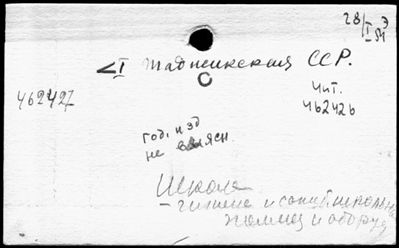 28/I-51 Э
<I Таджикская ССР.
С
462427
Чит.
462426
год изд
не выясн.
Школа
- гигиена и санит. школьн.
помещ и оборуд